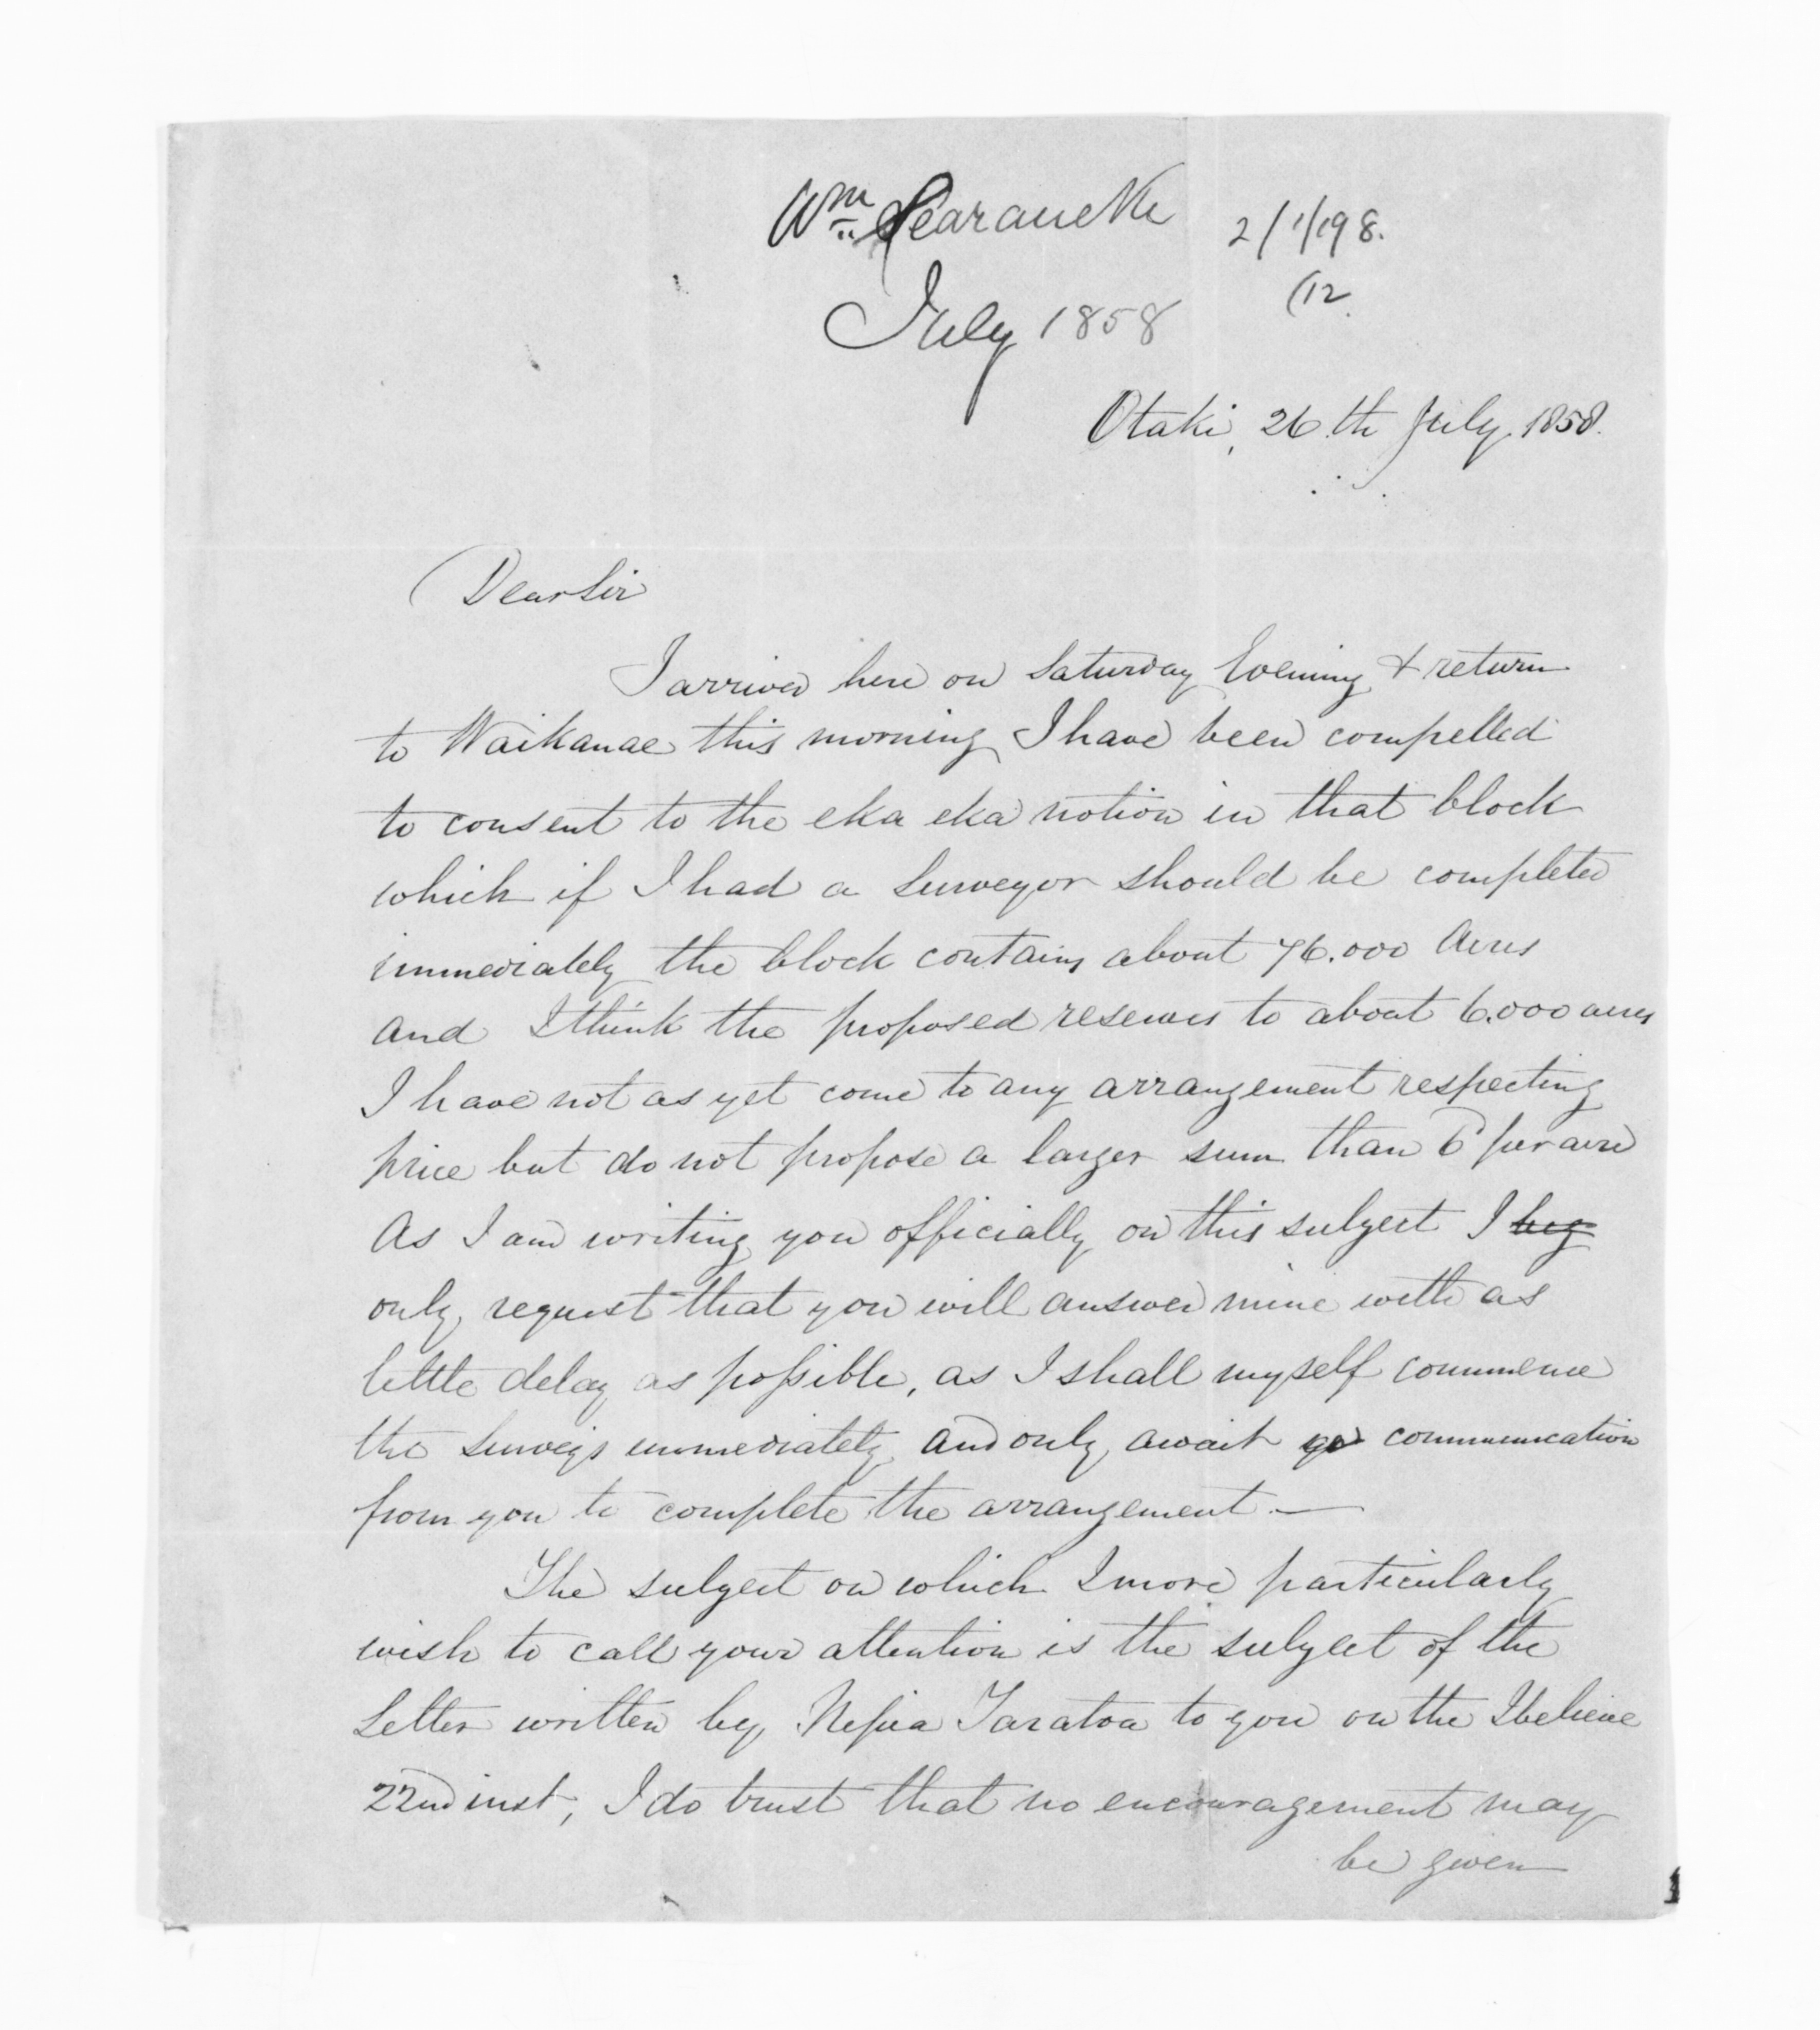 Wm Searancke
2/1/198.
July 1858
(12.
Otaki, 26th July, 1858.
Dear Sir
I arrived here on Saturday Evening & return
to Waikanae this morning I have been compelled
to consent to the eka eka notion in that block
which if I had a Surveyor should be completed
immediately the block contains about 76.000 Acres
and I think the proposed reserves to about 6.000 acres
I have not as yet come to any arrangement respecting
price but do not propose a larger sum than 6d per acre
As I am writing you officially on this subject I beg
only, request that you will answer mine with as
little delay as possible, as I shall myself commence
the Surveys immediately and only await yo communication
from you to complete the arrangement. —
The subject on which I more particularly
wish to call your attention is the subject of the
Letter written by Nepia Taratoa to you on the I believe
22nd inst, I do trust that no encouragement may
be given